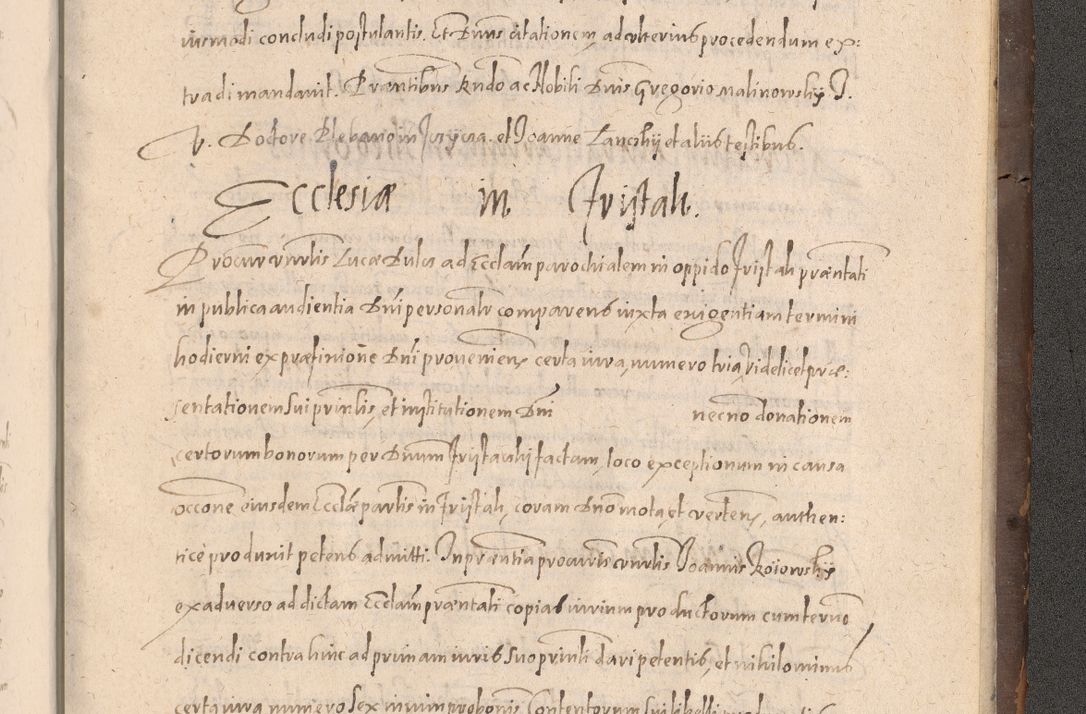 iusmodi concludi postulantis. Et Dnus citationem ad ulterius procedendum ex:
tradi mandavit. Prantibus Rndo ac Nobili Dnis Gregorio Malinowskÿ I.
V. Doctore Plebano in et Joanne Lanczkÿ et aliis testibus.
Ecclesiæ in Fristah.
Procur vnrlis Lucæ Dulca ad Ecclam parochialem in oppido Fristah præntati
in publica audientia Dni personalr comparens iuxta exigentiam termini
hodierni ex præfinione Dni proueniens certa iura, numero tria, videlicet præ:
sentationem sui prinlis, et institutionem Dni necno donationem
certorum bonorum per Dnum factam, loco exceptionum in causa
occone eiusdem Ecclæ parlis in Fristah, coram Dno mota, et vertens, authen:
tice produxit petens admitti. In præntia procuris vnrlis Joannis
ex aduerso ad dictam Ecclam præntati copias iurium productorum cum terno
dicendi contra hinc ad primam iuris suo prinli dari petentis, et nihilominus
certa iura numero sex